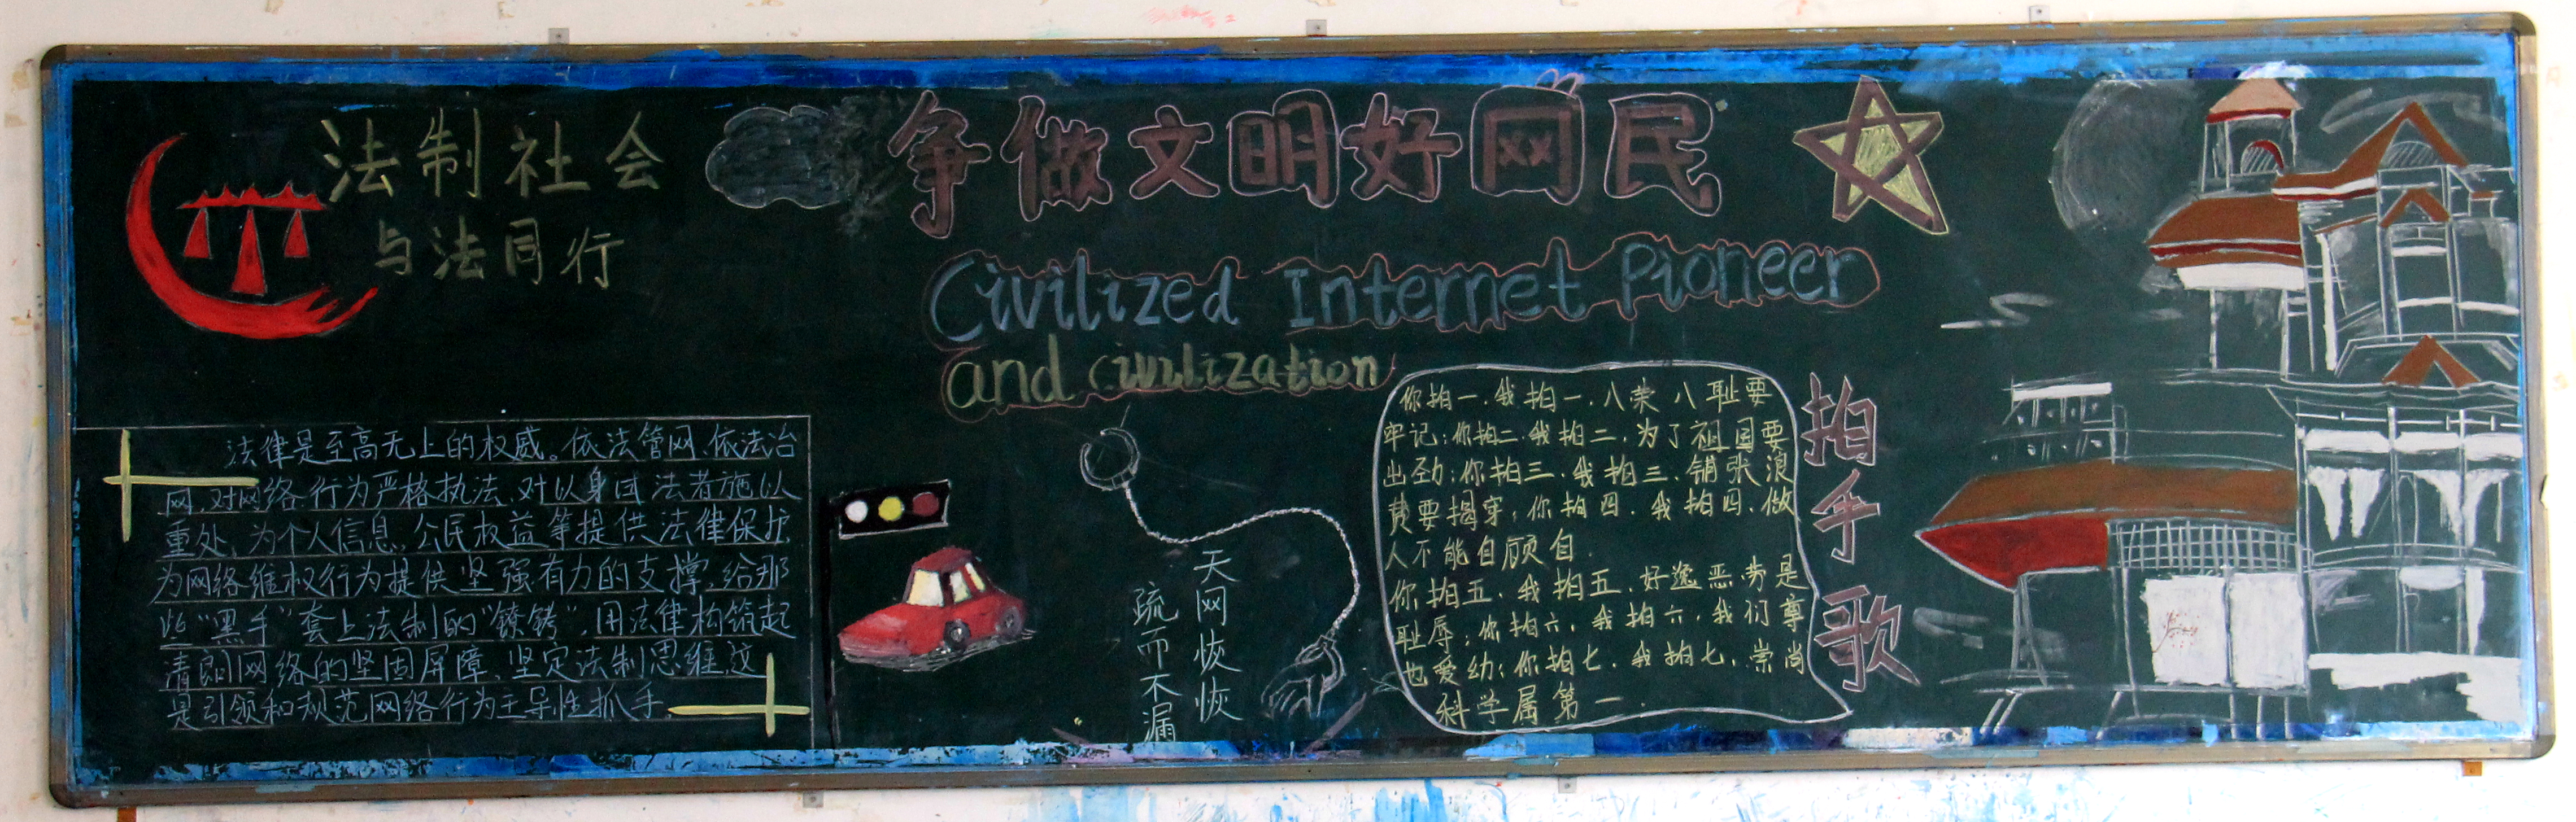 法制社会
与法同行
争做文明好网民
Civilized Internet Pioneer
and civilization
法律是至高无上的权威。依法管网、依法治
网,对网络行为严格执法、对以身试法者施以
重处,为个人信息,公民权益等提供法律保护
为网络维权行为提供坚强有力的支撑,给那
些"黑手"套上法制的"镣铐",用法律构筑起
清朗网络的坚固屏障、坚定法制思维,这
是引领和规范网络行为主导性抓手.
天网恢恢
疏而不漏
你拍一、我拍一、八荣八耻要
牢记;你拍二、我拍二、为了祖国要
出劲;你拍三、我拍三、铺张浪
费要揭穿;你拍四、我拍四、做
人不能自顾自.
你拍五、我拍五、好逸恶劳是
耻辱;你拍六、我拍六、我们尊
也爱幼;你拍七、我拍七、崇尚
科学属第一.
拍手歌